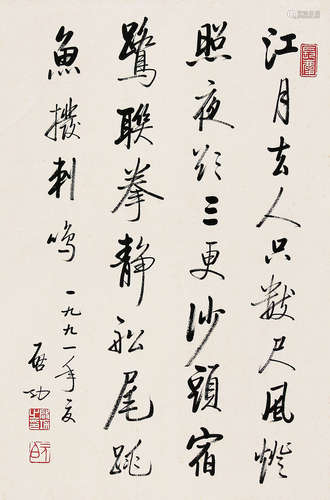 江月去人只數尺風燈
照夜欲三更沙頭宿
鷺聯拳靜舩尾跳
魚撥刺鳴 一九九一年夏
启功